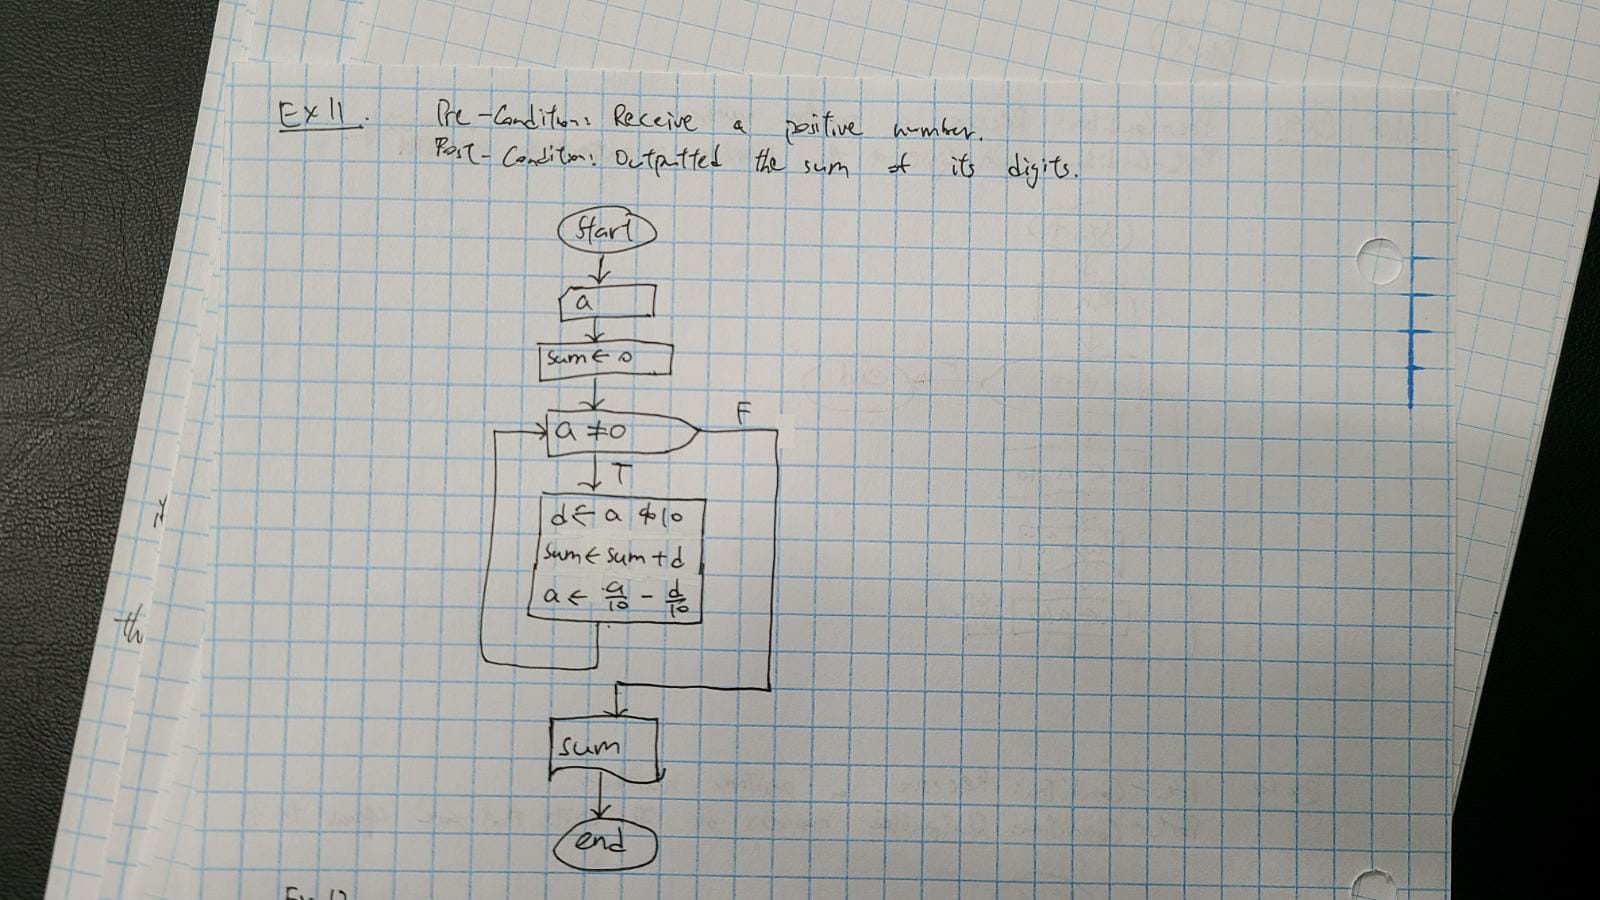 Ex 11.
Pre-Condition: Receive a positive number.
Post-Condition: Outputted the sum of its digits.
Start
a
sum ← 0
a ≠ 0
F
T
d ← a % 10
sum ← sum + d
a ← a/10 - d/10
sum
end
th